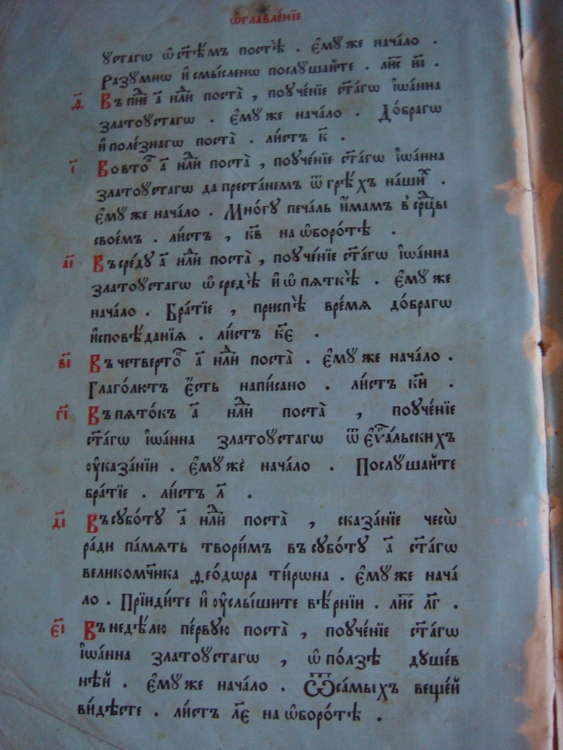 ѡ҆главле́нїе
устагѡ ѡ҆ ст҃ѣмъ постѣ̀ . є҆му́же нача́ло .
Разу́мнѡ и҆ смы́сленѡ послу́шайте . ли́с н҃і .
ѳ҃ Въ пн҃е а҃ нл҃и поста̀ , поуче́нїе ст҃агѡ і҆ѡа́нна
златоу́стагѡ . є҆му́же нача́ло . До́брагѡ
и҆ поле́знагѡ поста̀ . ли́стъ к҃ .
і҃ Во вто҇ а҃ нл҃и поста̀ , поуче́нїе ст҃а́гѡ і҆ѡа́нна
златоу́стагѡ да преста́немъ ѿ грѣ̑хъ на́ших .
є҆му́же нача́ло . Мно́гу печа́ль и҆́мамъ в ср҃цы
свое́мъ . ли́стъ , к҃в на ѡ҆боро́тѣ .
а҃і Въ сре́ду а҃ нл҃и поста̀ , поуче́нїе ст҃а́гѡ і҆ѡа́нна
златоу́стагѡ ѡ҆ средѣ̀ и҆ ѡ҆ пяткѣ̀ . є҆му́же
нача́ло . Бра́тїе , приспѣ̀ вре́мѧ до́брагѡ
и҆сповѣ́данїѧ . ли́стъ к҃є .
в҃і Въ четверто҇ а҃ нл҃и поста̀ . є҆му́же нача́ло .
Глаго́лютъ є҆́сть напи́сано . ли́стъ к҃и .
г҃і Въ пѧто́къ а҃ нл҃и поста̀ , поуче́нїе
ст҃а́гѡ і҆ѡа́нна златоу́стагѡ ѿ є҆у҃а́льскихъ
ᲂу҆каза́нїи . є҆му́же нача́ло . Послу́шайте
бра́тїе . ли́стъ л҃ .
д҃і Въ суббо́ту а҃ нл҃и поста̀ , сказа́нїе чесѡ̀
ра́ди па́мѧть твори́мъ въ субо́ту а҃ ст҃а́гѡ
великомч҃нка ѳео́дѡра ти́рѡна . є҆му́же нача́
ло . Прїиди́те и҆ ᲂу҆слы́шите вѣ́рнїи . ли́с л҃г .
є҃і Въ недѣ́лю пе́рвую поста̀ , поуче́нїе ст҃а́гѡ
і҆ѡа́нна златоу́стагѡ , ѡ҆ по́лзѣ душе́в
нѣ́й . є҆му́же нача́ло . Ѿ са́мыхъ веще́й
ви́дѣсте . ли́стъ л҃є на ѡ҆боро́тѣ .